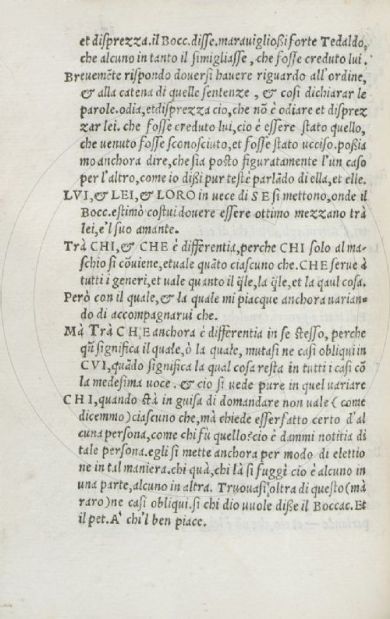 et disprezza. il Bocc. disse. maraviglioßi forte Tedaldo,
che alcuno in tanto il simigliasse, che fosse creduto lui.
Brevemẽte rispondo doversi havere riguardo all'ordine,
& alla catena di quelle sentenze, & cosi dichiarar le
parole. odia, et disprezza cio, che nõ è odiare et disprez
zar lei. che fosse creduto lui, cio è essere stato quello,
che venuto fosse sconosciuto, et fosse stato ucciso. poßia
mo anchora dire, che sia posto figuratamente l'un caso
per l'altro, come io dißi pur testè parlãdo di ella, et elle.
LVI, & LEI, & LORO in vece di SE si mettono, onde il
Bocc. estimò costui dovere essere ottimo mezzano trà
lei, e'l suo amante.
Trà CHI, & CHE è differentia, perche CHI solo al ma-
schio si cõviene, et vale quãto ciascuno che. CHE serve à
tutti i generi, et vale quanto il q̃le, la q̃le, et la qaul cosa.
Però con il quale, & la quale mi piacque anchora varian-
do di accompagnarui che.
Mà Trà CHE anchora è differentia in se stesso, perche
qñ significa il quale, ò la quale, mutasi ne casi obliqui in
CVI, quãdo significa la qual cosa resta in tutti i casi cõ
la medesima voce. & cio si vede pure in quel variare
CHI, quando stà in guisa di domandare non vale (come
dicemmo) ciascuno che, mà chiede esser fatto certo d'al
cuna persona, come chi fù quello? cio è dammi notitia di
tale persona. egli si mette anchora per modo di elettio
ne in tal maniera. chi quà, chi là si fuggì cio è alcuno in
una parte, alcuno in altra. Truovasi, oltra di questo (mà
raro) ne casi obliqui. si chi dio vuole diße il Boccac. Et
il pet. A' chi'l ben piace.